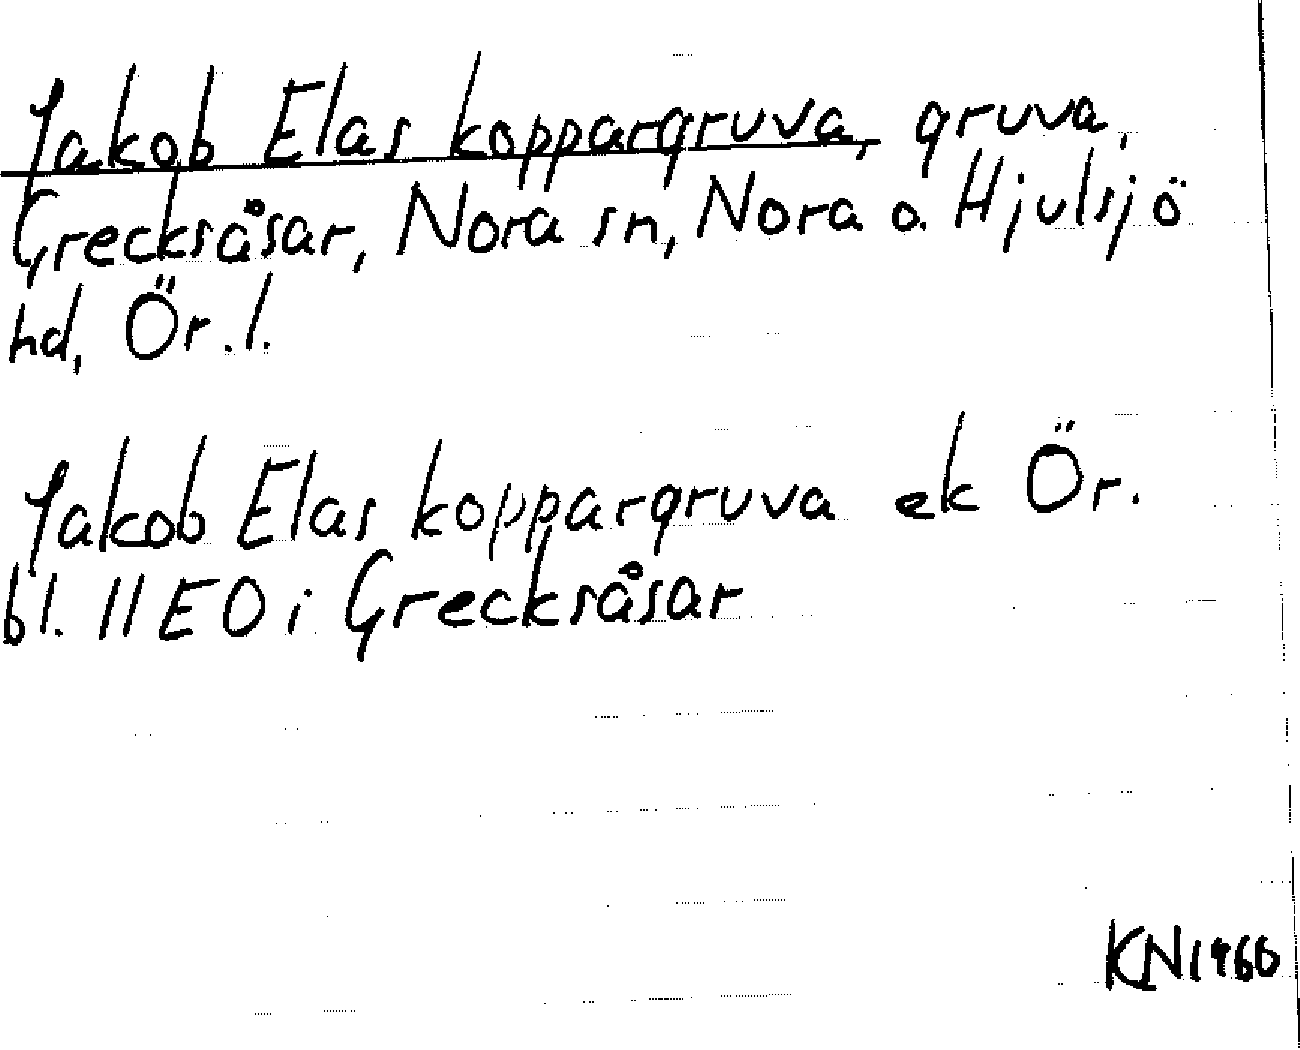 Jakob Elas koppargruva, gruva,
Grecksåsar, Nora sn, Nora o. Hjulsjö
hd, Ör. l.
Jakob Elas koppargruva ek Ör.
bl. 11 EO i Grecksåsar
KN1966